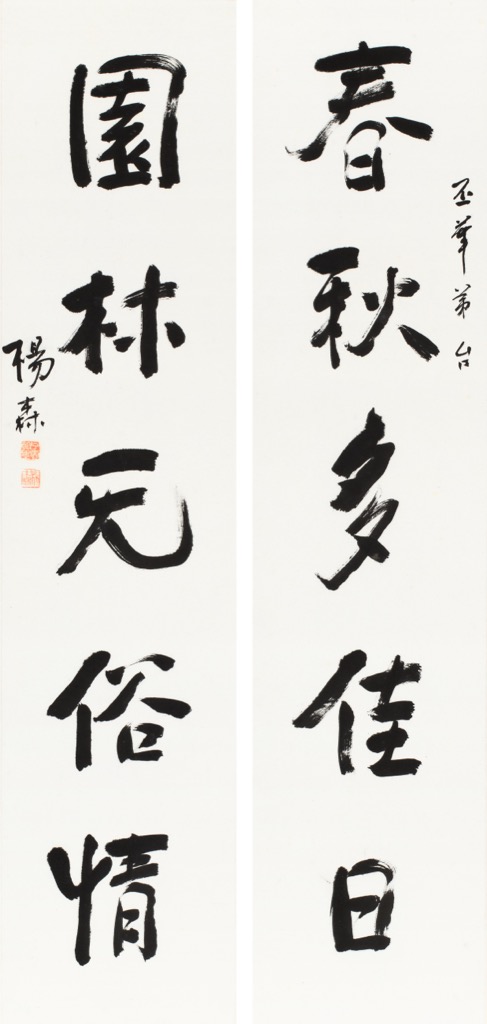 春秋多佳日
丕華弟台
園林无俗情
楊森